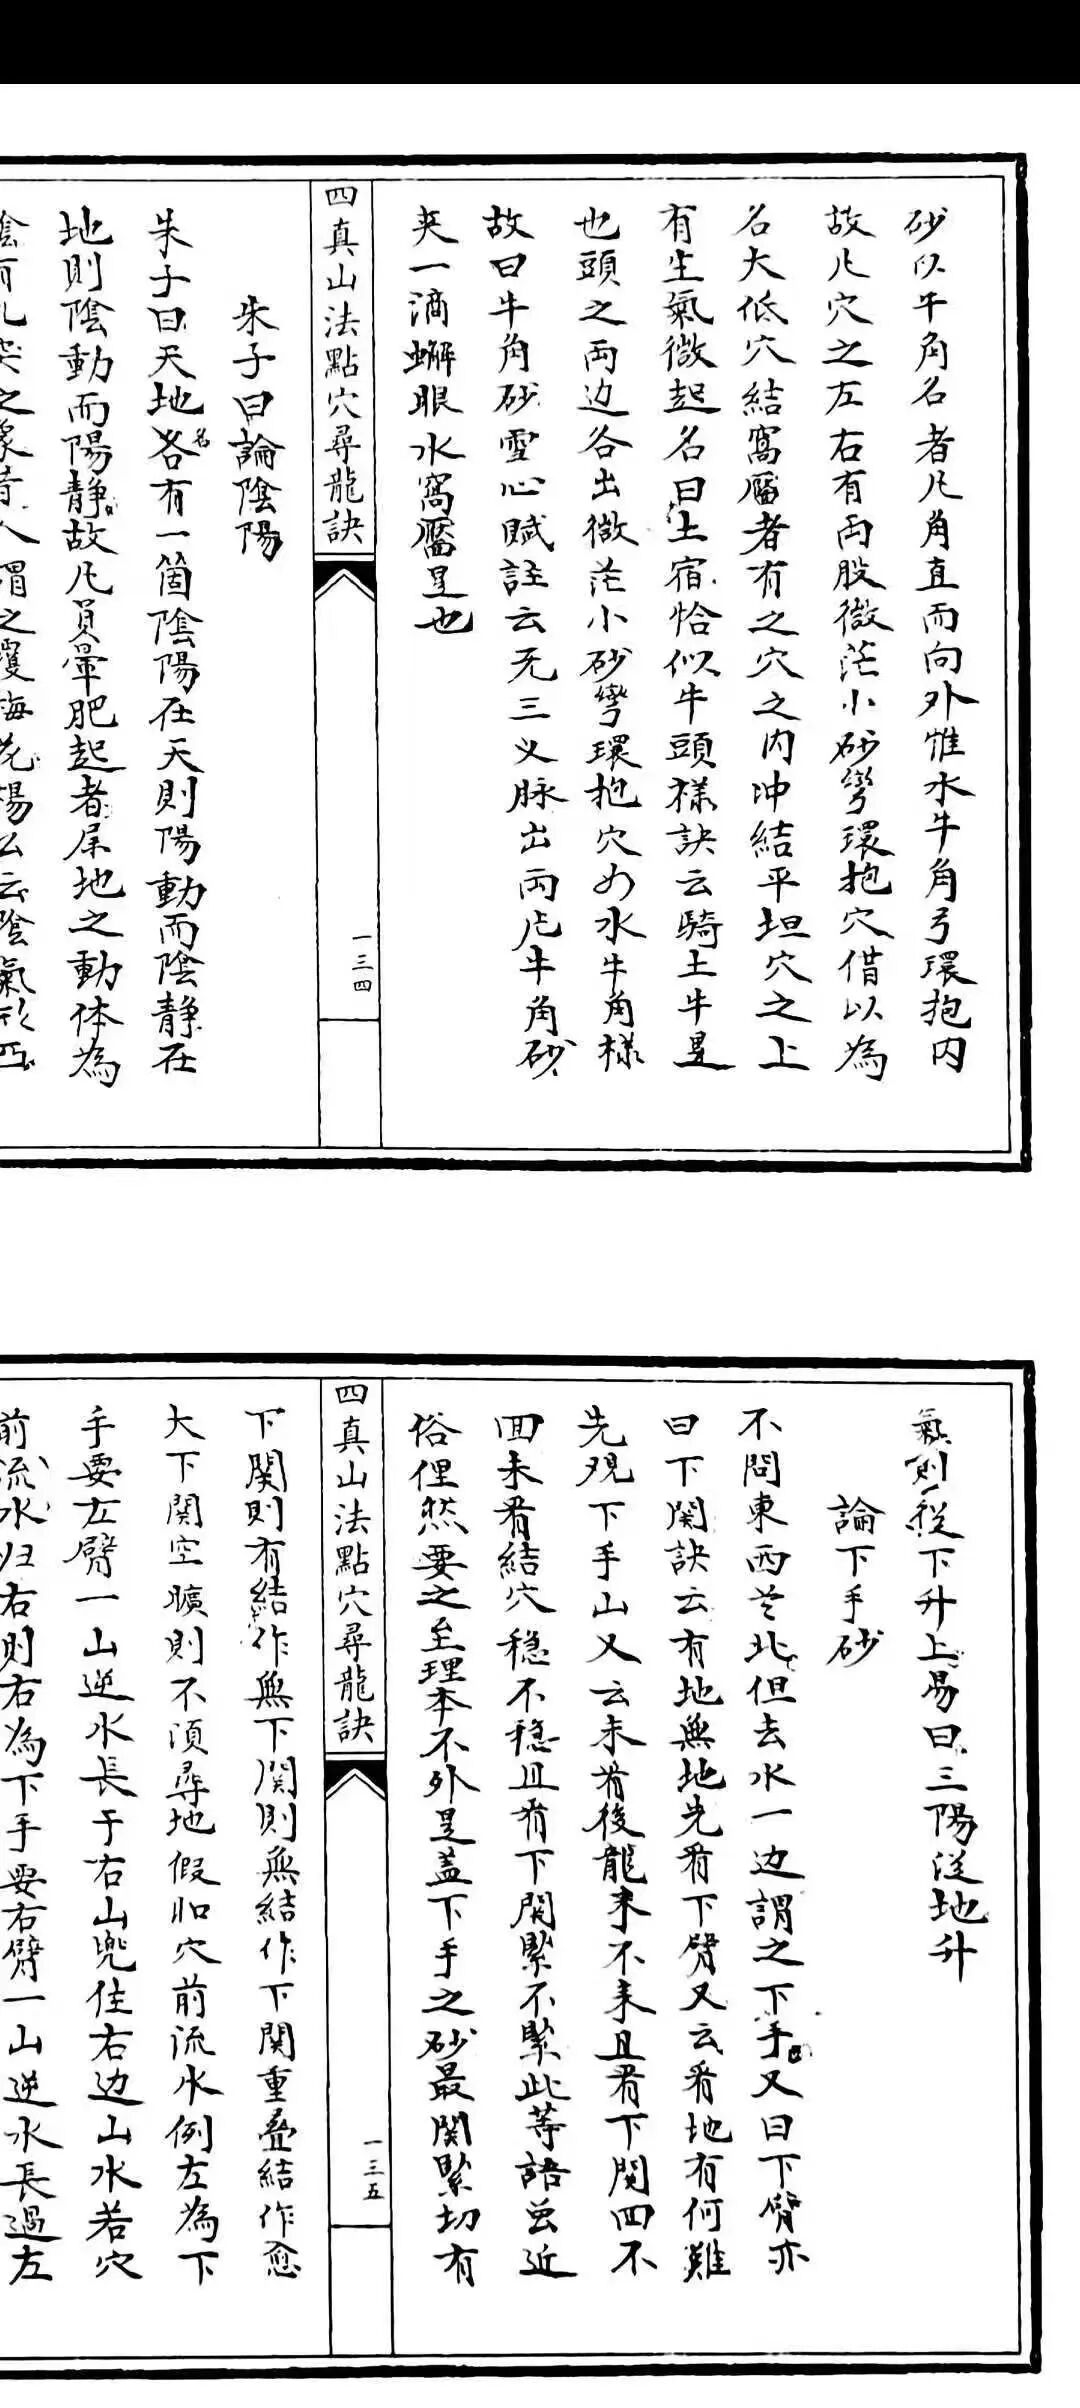 砂以牛角名者凡角直而向外惟水牛角弓環抱内
故凡穴之左右有两股微茫小砂彎環抱穴借以為
名大低穴結窩靨者有之穴之内冲結平坦穴之上
有生氣微起名曰土宿恰似牛頭樣訣云騎土牛是
也頭之两边各出微茫小砂彎環抱穴如水牛角樣
故曰牛角砂雪心賦註云无三义脉出两片牛角砂
夹一滴蠏眼水窩靨是也
四真山法點穴尋龍訣
一三四
朱子曰論陰陽
朱子曰天地各名有一箇陰陽在天則陽動而陰静在
地則陰動而陽静故凡員暈肥起者屬地之動体為
陰有凸突之象昔人謂之覆梅花楊公云陰氣形
氣則從下升上易曰三陽従地升
論下手砂
不問東西兰北但去水一边謂之下手又曰下臂亦
曰下関訣云有地無地先看下臂又云看地有何難
先观下手山又云未看後龍来不来且看下関四不
回未看結穴穏不穏且看下関緊不緊此等語兰近
俗俚然要之至理本不外是盖下手之砂最関緊切有
四真山法點穴尋龍訣
一三五
下関則有結作無下関則無結作下関重叠結作愈
大下関空曠則不須尋地假如穴前流水倒左為下
手要左臂一山逆水長于右山兜住右边山水若穴
前流水归右則右為下手要右臂一山逆水長過左